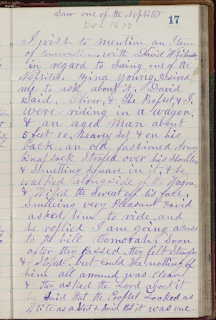 Saw one of the Nephites
Dec 1877
17
I wish to mention an Item
of conversation with David Whitmer
in regard to Seeing one of the
Nephites. Zina Young, Desired
me to ask about it. David
Said, Oliver, & The Prophet, & I
were riding in a wagon,
& an aged Man about
5 feet 10, heavey Set & on his
back, an old fashioned Army
knapsack Straped over his Shoulders
& Something Square in it, & he
walked alongside of the Wagon
& Wiped the Sweat off his face,
Smileing very Pleasant David
asked him to ride, and
he replied I am going across
to the hill Cumorah. Soon
after they Passed, they felt Strangely
& Stoped, but could See nothing of
him all around was clear
& they asked the Lord about it
he Said that the Prophet Looked as
White as a Sheet & Said that it was one